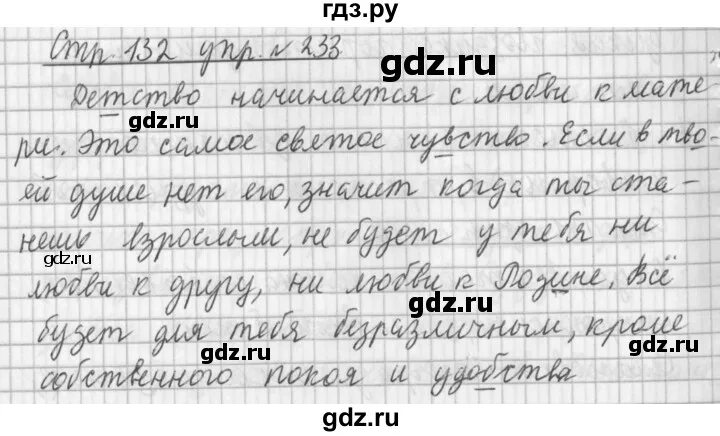 гдз.ру
Стр. 132 упр. № 233
gdz.ru
Детство начинается с любви к мате
gdz.ru
ри. Это самое святое чувство. Если в тво-
gdz.ru
ей душе нет его, значит когда ты ста-
нешь взрослым, не будет у тебя ни
gdz.ru
любви к другу, ни любви к Родине. Всё
gdz.ru
будет для тебя безразличным, кроме
gdz.ru
собственного покоя и удобства
gdz.ru